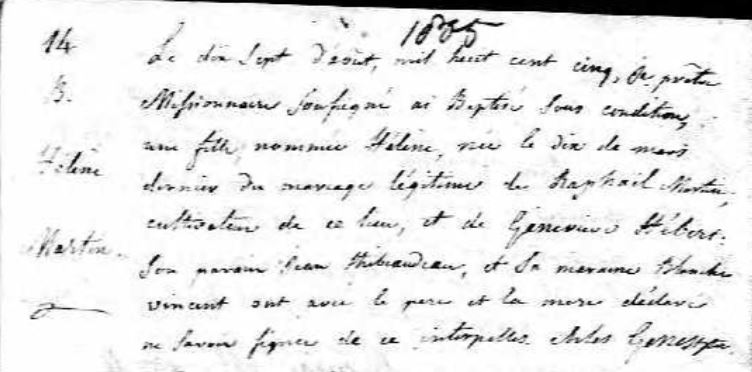 1805
14
B.
Hélène
Martin.
Le dix sept d'août, mil huit cent cinq, je prêtre
Missionnaire soussigné ai Baptisé sous condition,
une fille, nommée Hélène, née le dix de mars
dernier du mariage légitime de Raphaël Martin,
cultivateur de ce lieu, et de Genevieve Hébert.
Son parain Jean Thibeaudeau, et sa maraine Blanche
vincent ont avec le pere et la mere déclaré
ne savoir signer de ce interpellés.